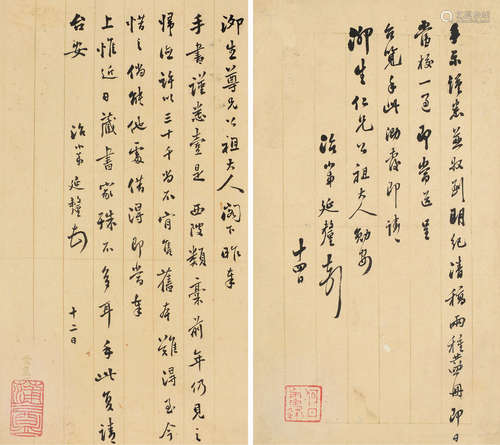 手示謹悉並收到明紀清稿兩種冊即日
當校一過即當送呈
台覽手此泐覆即請
泖生仁兄公祖大人勛安
治小弟延釐頓
十四日
泖生尊兄公祖大人閣下昨奉
手書謹悉壹是西陂類稾前年仍見之
歸途許以三十千尚不肯售舊本難得至今
惜之倘能他處借得即當奉
上惟近日藏書家殊不多耳手此复請
台安
治小弟延釐頓
十二日